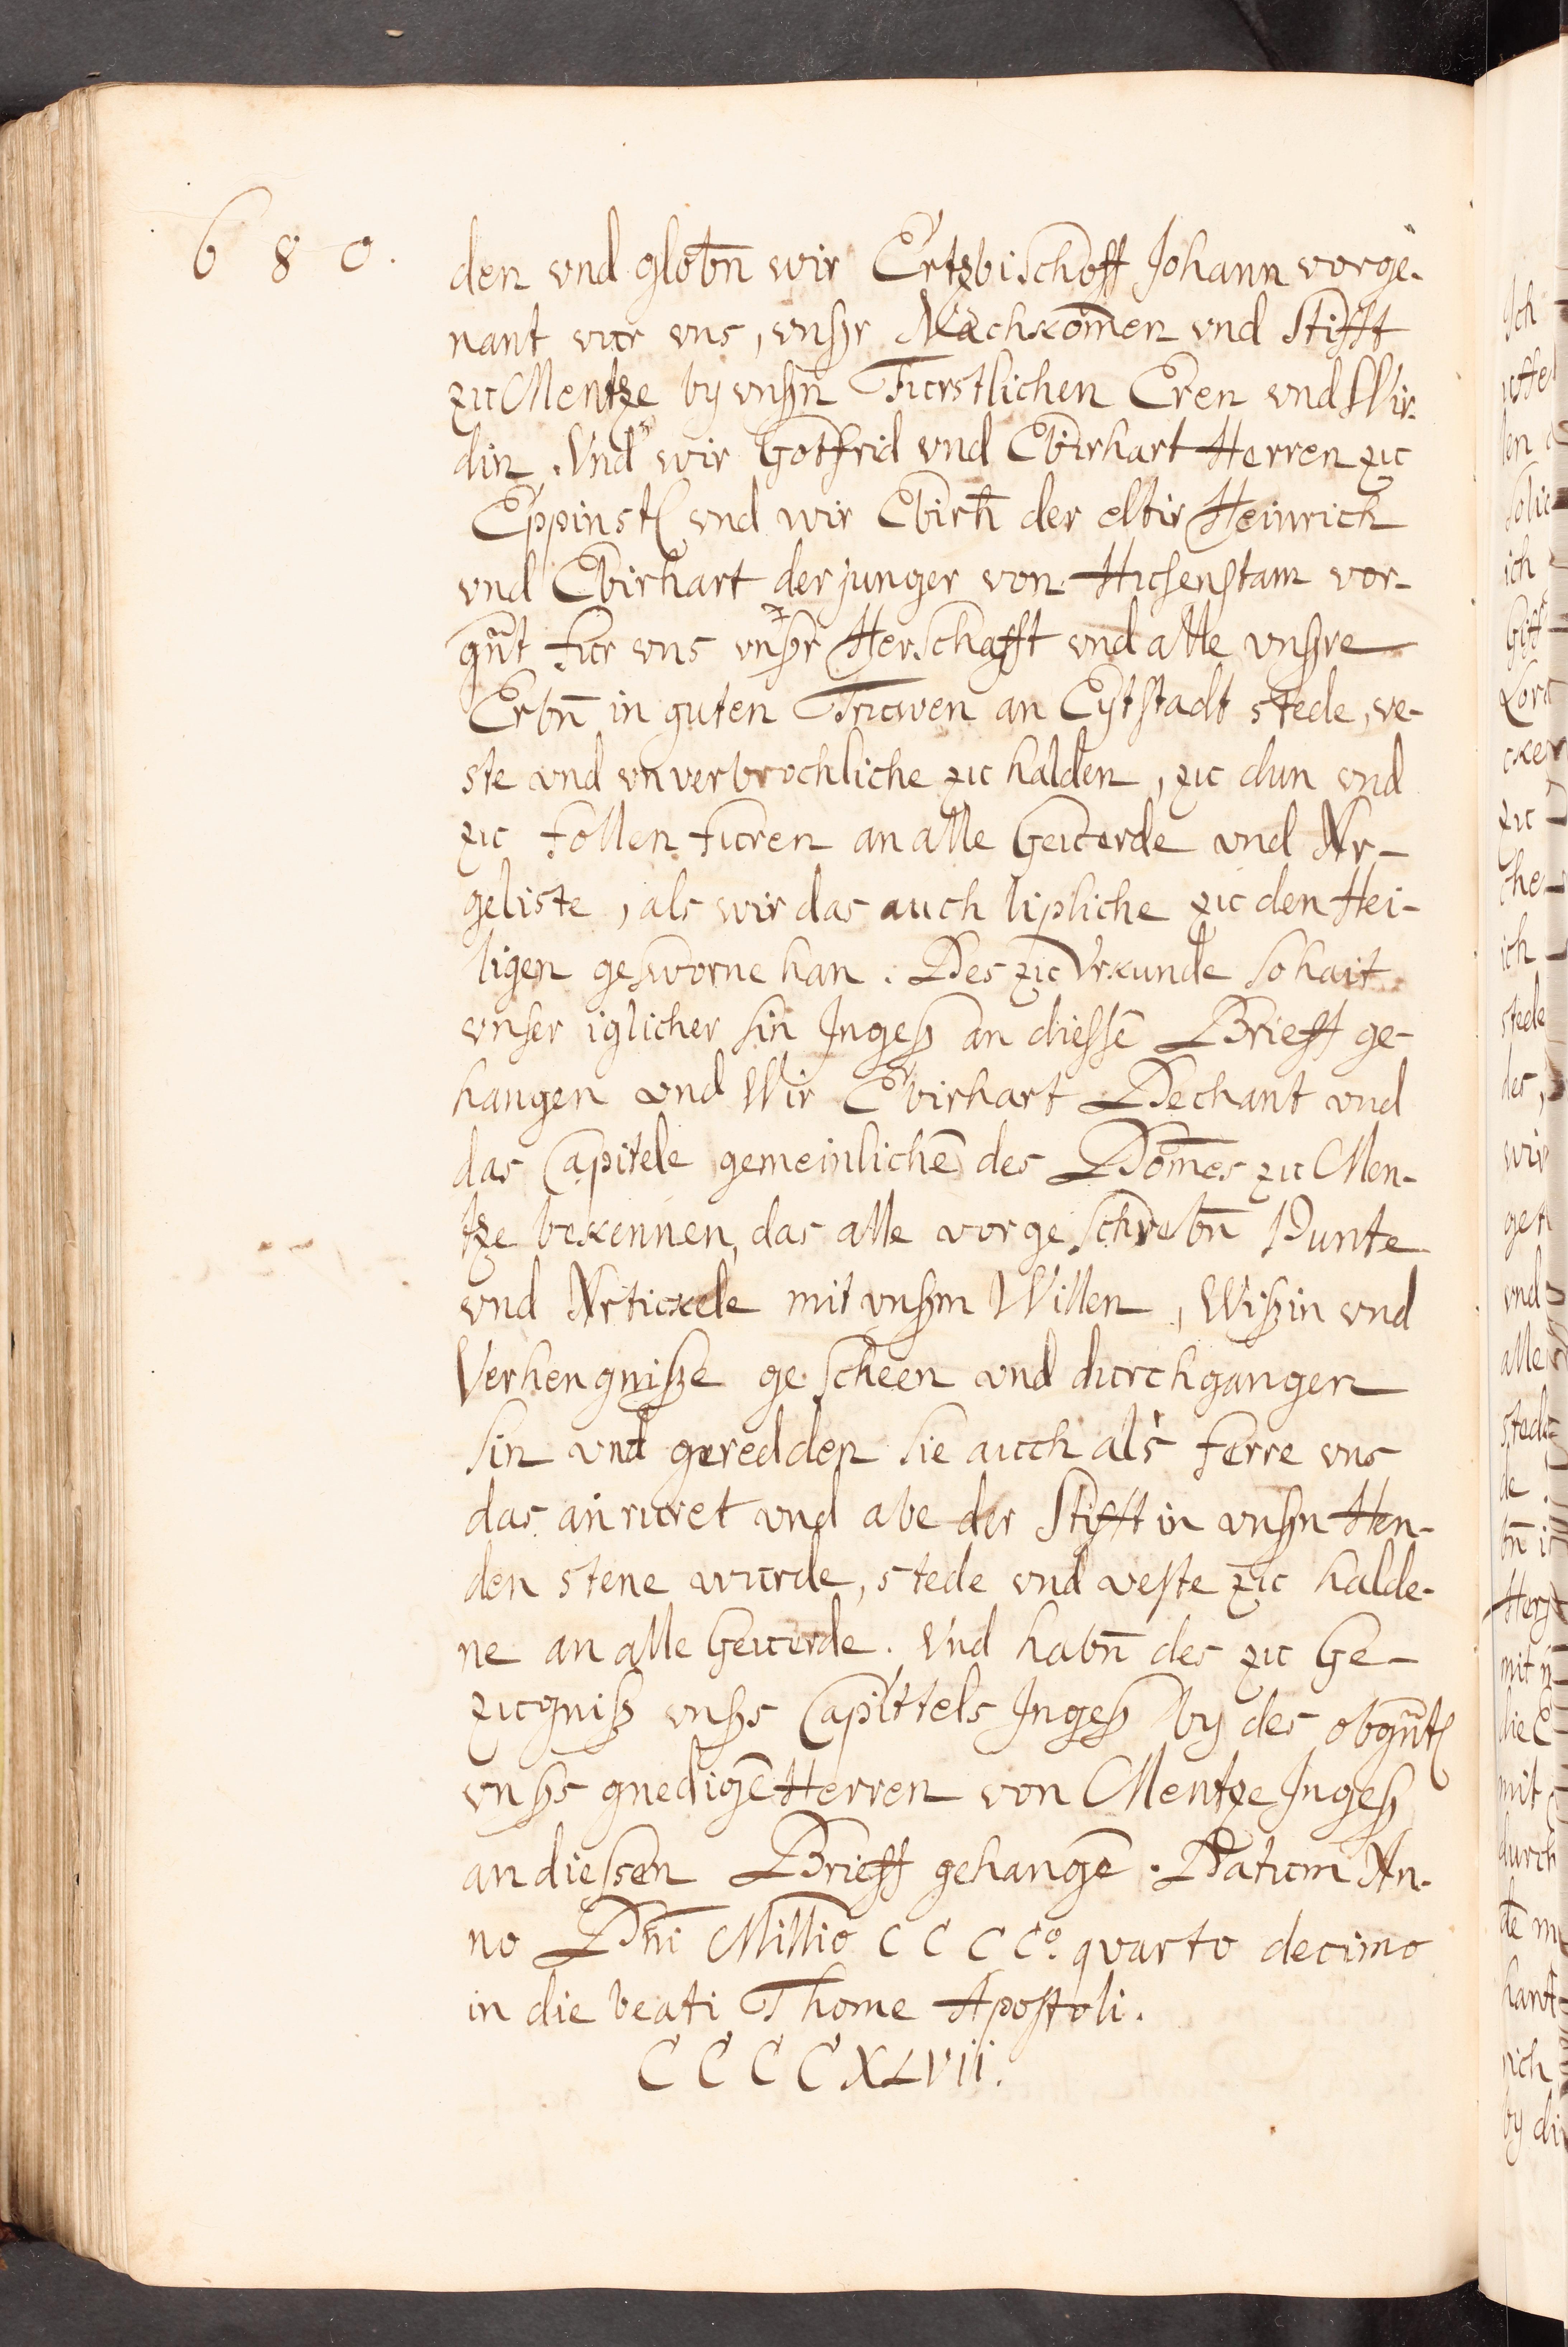 680.
den vnd globn̄ wir Ertzbischoff Johann vorge-
nant vur vns, vnßr Nachkom̄en vnd Stifft
zu Mentze by vnßn Furstlichen Eren vnd Wir-
din. Vnd wir Gotfrid vnd Ebirhart Herren zu
Eppinst vnd wir Ebirh̄ der eltir Heinrich
vnd Ebirhart der junger von Husenstam vor-
gn̄t fur vns vnßr Herschafft vnd alle vnßre
Erbn̄ in guten Truwen an Eytstadt stede, ve-
ste vnd vnverbrochliche zu halden, zu dun vnd
zu follen furen an alle Geuerde vnd Ar-
geliste, als wir das auch lipliche zu den Hei-
ligen gesworne han. Des zu Vrkunde so hait
vnser iglicher sin Ingeß an diessē Brieff ge-
hangen vnd Wir Ebirhart Dechant vnd
das Capitele gemeinlichē des Dom̄es zu Men-
tze bekennen, das alle vorgeschrebn̄ Punte
vnd Artickele mit vnßm Willen, Wißin vnd
Verhengniße gescheen vnd durchgangen
sin vnd geredden sie auch als ferre vns
das anruret vnd abe der Stifft in vnßn Hen-
den stene wurde, stede vnd veste zu halde-
ne an alle Geuerde. Vnd habn̄ des zu Ge-
zugniß vnßs Capittels Ingeß by des obgn̄t
vnßs gnedigē Herren von Mentze Ingeß
an diessen Brieff gehangē. Datum An-
no Dn̄i Millīo C C C Co. quarto decimo
in die beati Thome Apostoli.
C C C C XLVII.